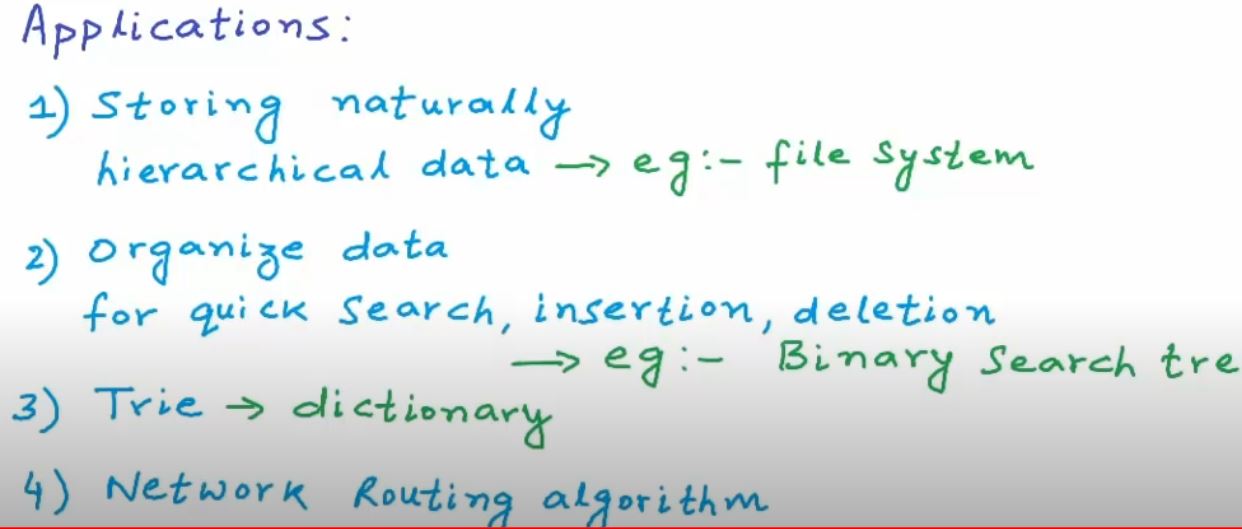 Applications:
1) Storing naturally
hierarchical data → eg:- file system
2) Organize data
for quick search, insertion, deletion
→ eg:- Binary Search tre
3) Trie → dictionary
4) Network Routing algorithm